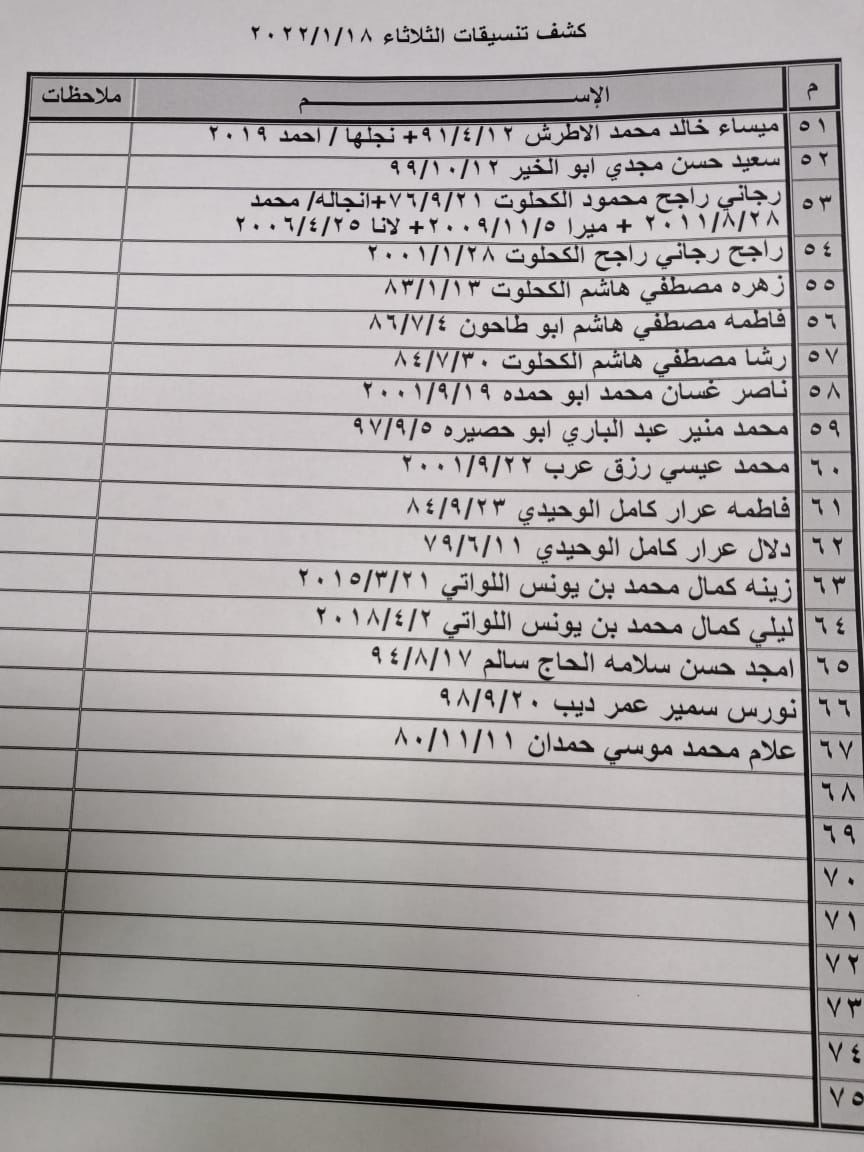 كشف تنسيقات الثلاثاء ٢٠٢٢/١/١٨
م الإســـــــــــــــــم ملاحظات
٥١ ميساء خالد محمد الاطرش ٩١/٤/١٢+ نجلها / احمد ٢٠١٩
٥٢ سعيد حسن مجدي ابو الخير ٩٩/١٠/١٢
٥٣ رجاني راجح محمود الكحلوت ٧٦/٩/٢١+انجاله/ محمد
٢٠١١/٨/٢٨ + ميرا ٢٠٠٩/١١/٥+ لانا ٢٠٠٦/٤/٢٥
٥٤ راجح رجاني راجح الكحلوت ٢٠٠١/١/٢٨
٥٥ زهره مصطفي هاشم الكحلوت ٨٣/١/١٣
٥٦ فاطمه مصطفي هاشم ابو طاحون ٨٦/٧/٤
٥٧ رشا مصطفي هاشم الكحلوت ٨٤/٧/٣٠
٥٨ ناصر غسان محمد ابو حمده ٢٠٠١/٩/١٩
٥٩ محمد منير عبد الباري ابو حصيره ٩٧/٩/٥
٦٠ محمد عيسي رزق عرب ٢٠٠١/٩/٢٢
٦١ فاطمه عرار كامل الوحيدي ٨٤/٩/٢٣
٦٢ دلال عرار كامل الوحيدي ٧٩/٦/١١
٦٣ زينه كمال محمد بن يونس اللواتي ٢٠١٥/٣/٢١
٦٤ ليلي كمال محمد بن يونس اللواتي ٢٠١٨/٤/٢
٦٥ امجد حسن سلامه الحاج سالم ٩٤/٨/١٧
٦٦ نورس سمير عمر ديب ٩٨/٩/٢٠
٦٧ علام محمد موسي حمدان ٨٠/١١/١١
٦٨
٦٩
٧٠
٧١
٧٢
٧٣
٧٤
٧٥